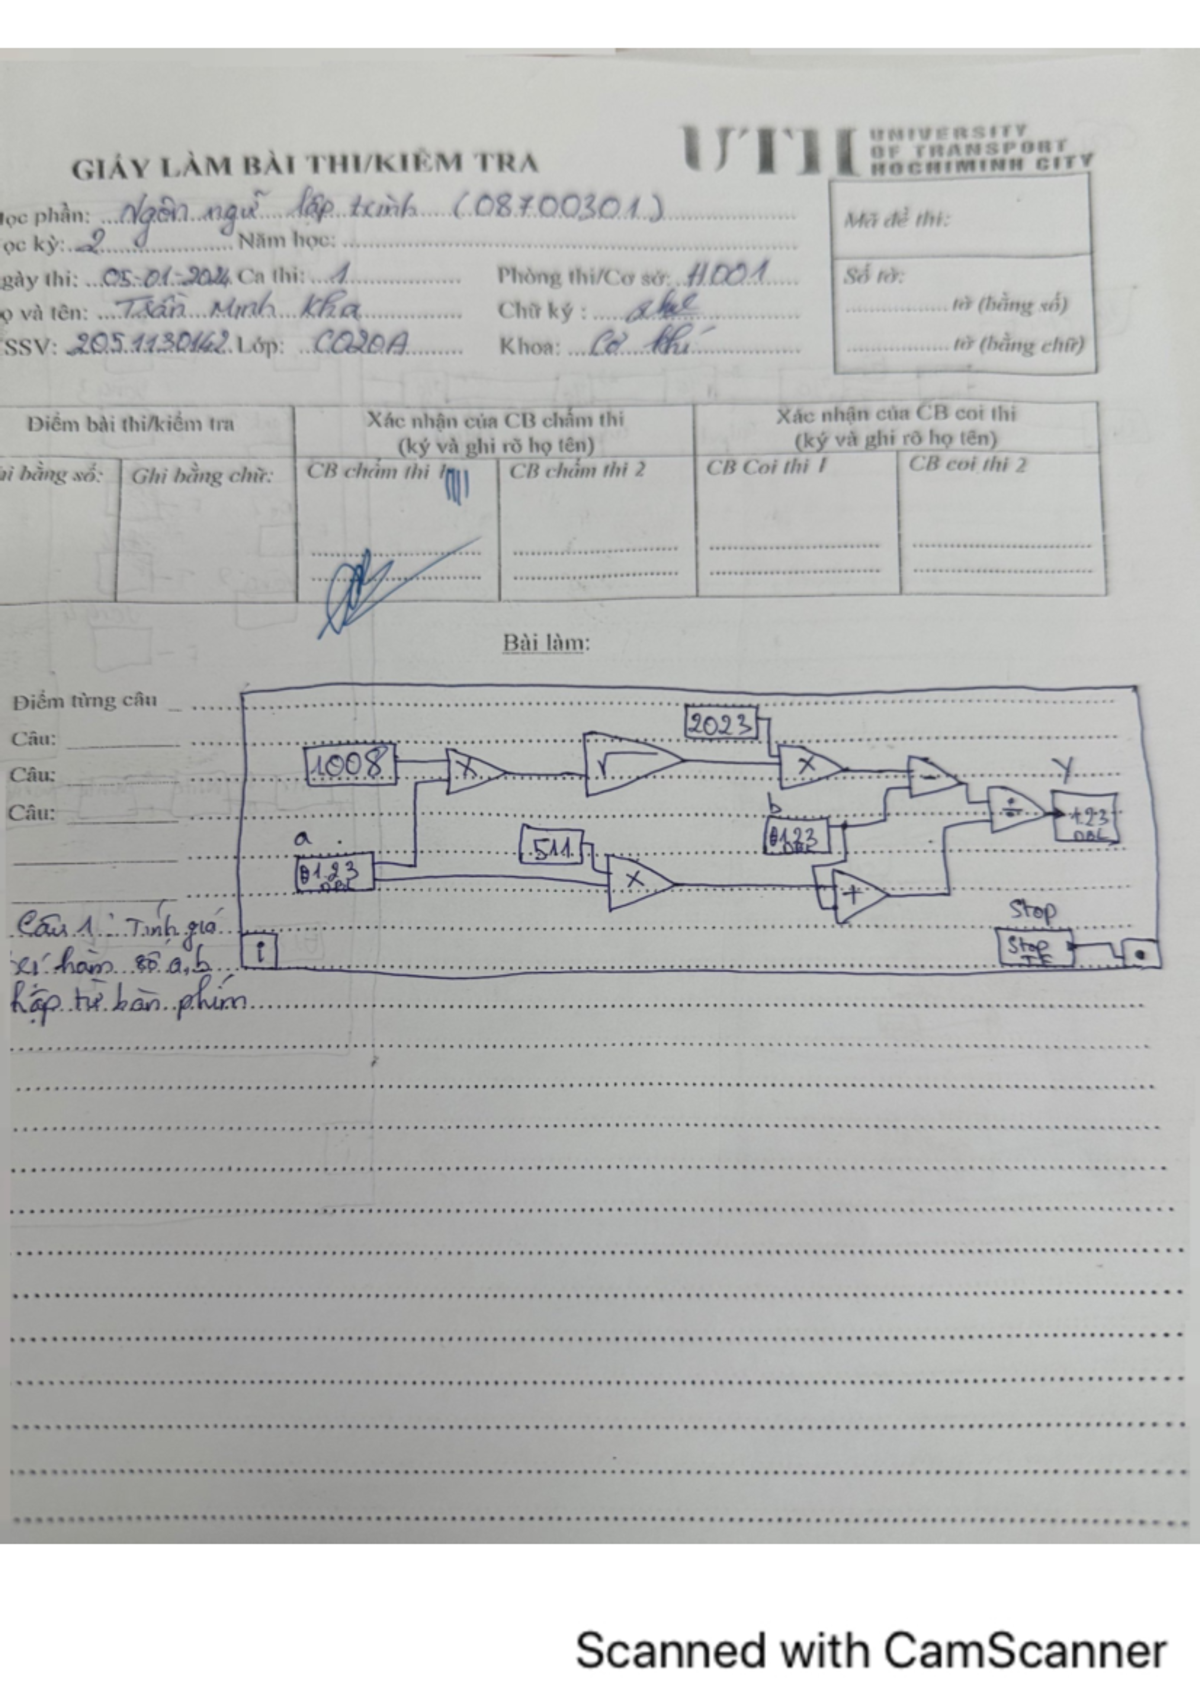 UTH UNIVERSITY
OF TRANSPORT
HOCHIMINH CITY
GIẤY LÀM BÀI THI/KIỂM TRA
Học phần: Ngôn ngữ lập trình (08700301)
ọc kỳ: 2 Năm học:
gày thi: 05-01-2024 Ca thi: 1 Phòng thi/Cơ sở: H001
ọ và tên: Trần Minh Kha Chữ ký:
SSV: 2051130142 Lớp: CO20A Khoa: Cơ khí
Mã đề thi:
Số tờ:
tờ (bằng số)
tờ (bằng chữ)
Điểm bài thi/kiểm tra Xác nhận của CB chấm thi Xác nhận của CB coi thi
(ký và ghi rõ họ tên) (ký và ghi rõ họ tên)
hi bằng số: Ghi bằng chữ: CB chấm thi 1 CB chấm thi 2 CB Coi thi 1 CB coi thi 2
Bài làm:
Điểm từng câu
Câu:
Câu:
Câu:
2023
1008 × √ × - Y
b
÷ 123
DBL
a 511 123
DBL
123
DBL
× +
Stop
Stop
TF
i
Câu 1: Tính giá
trị hàm số a,b
hập từ bàn phím
Scanned with CamScanner